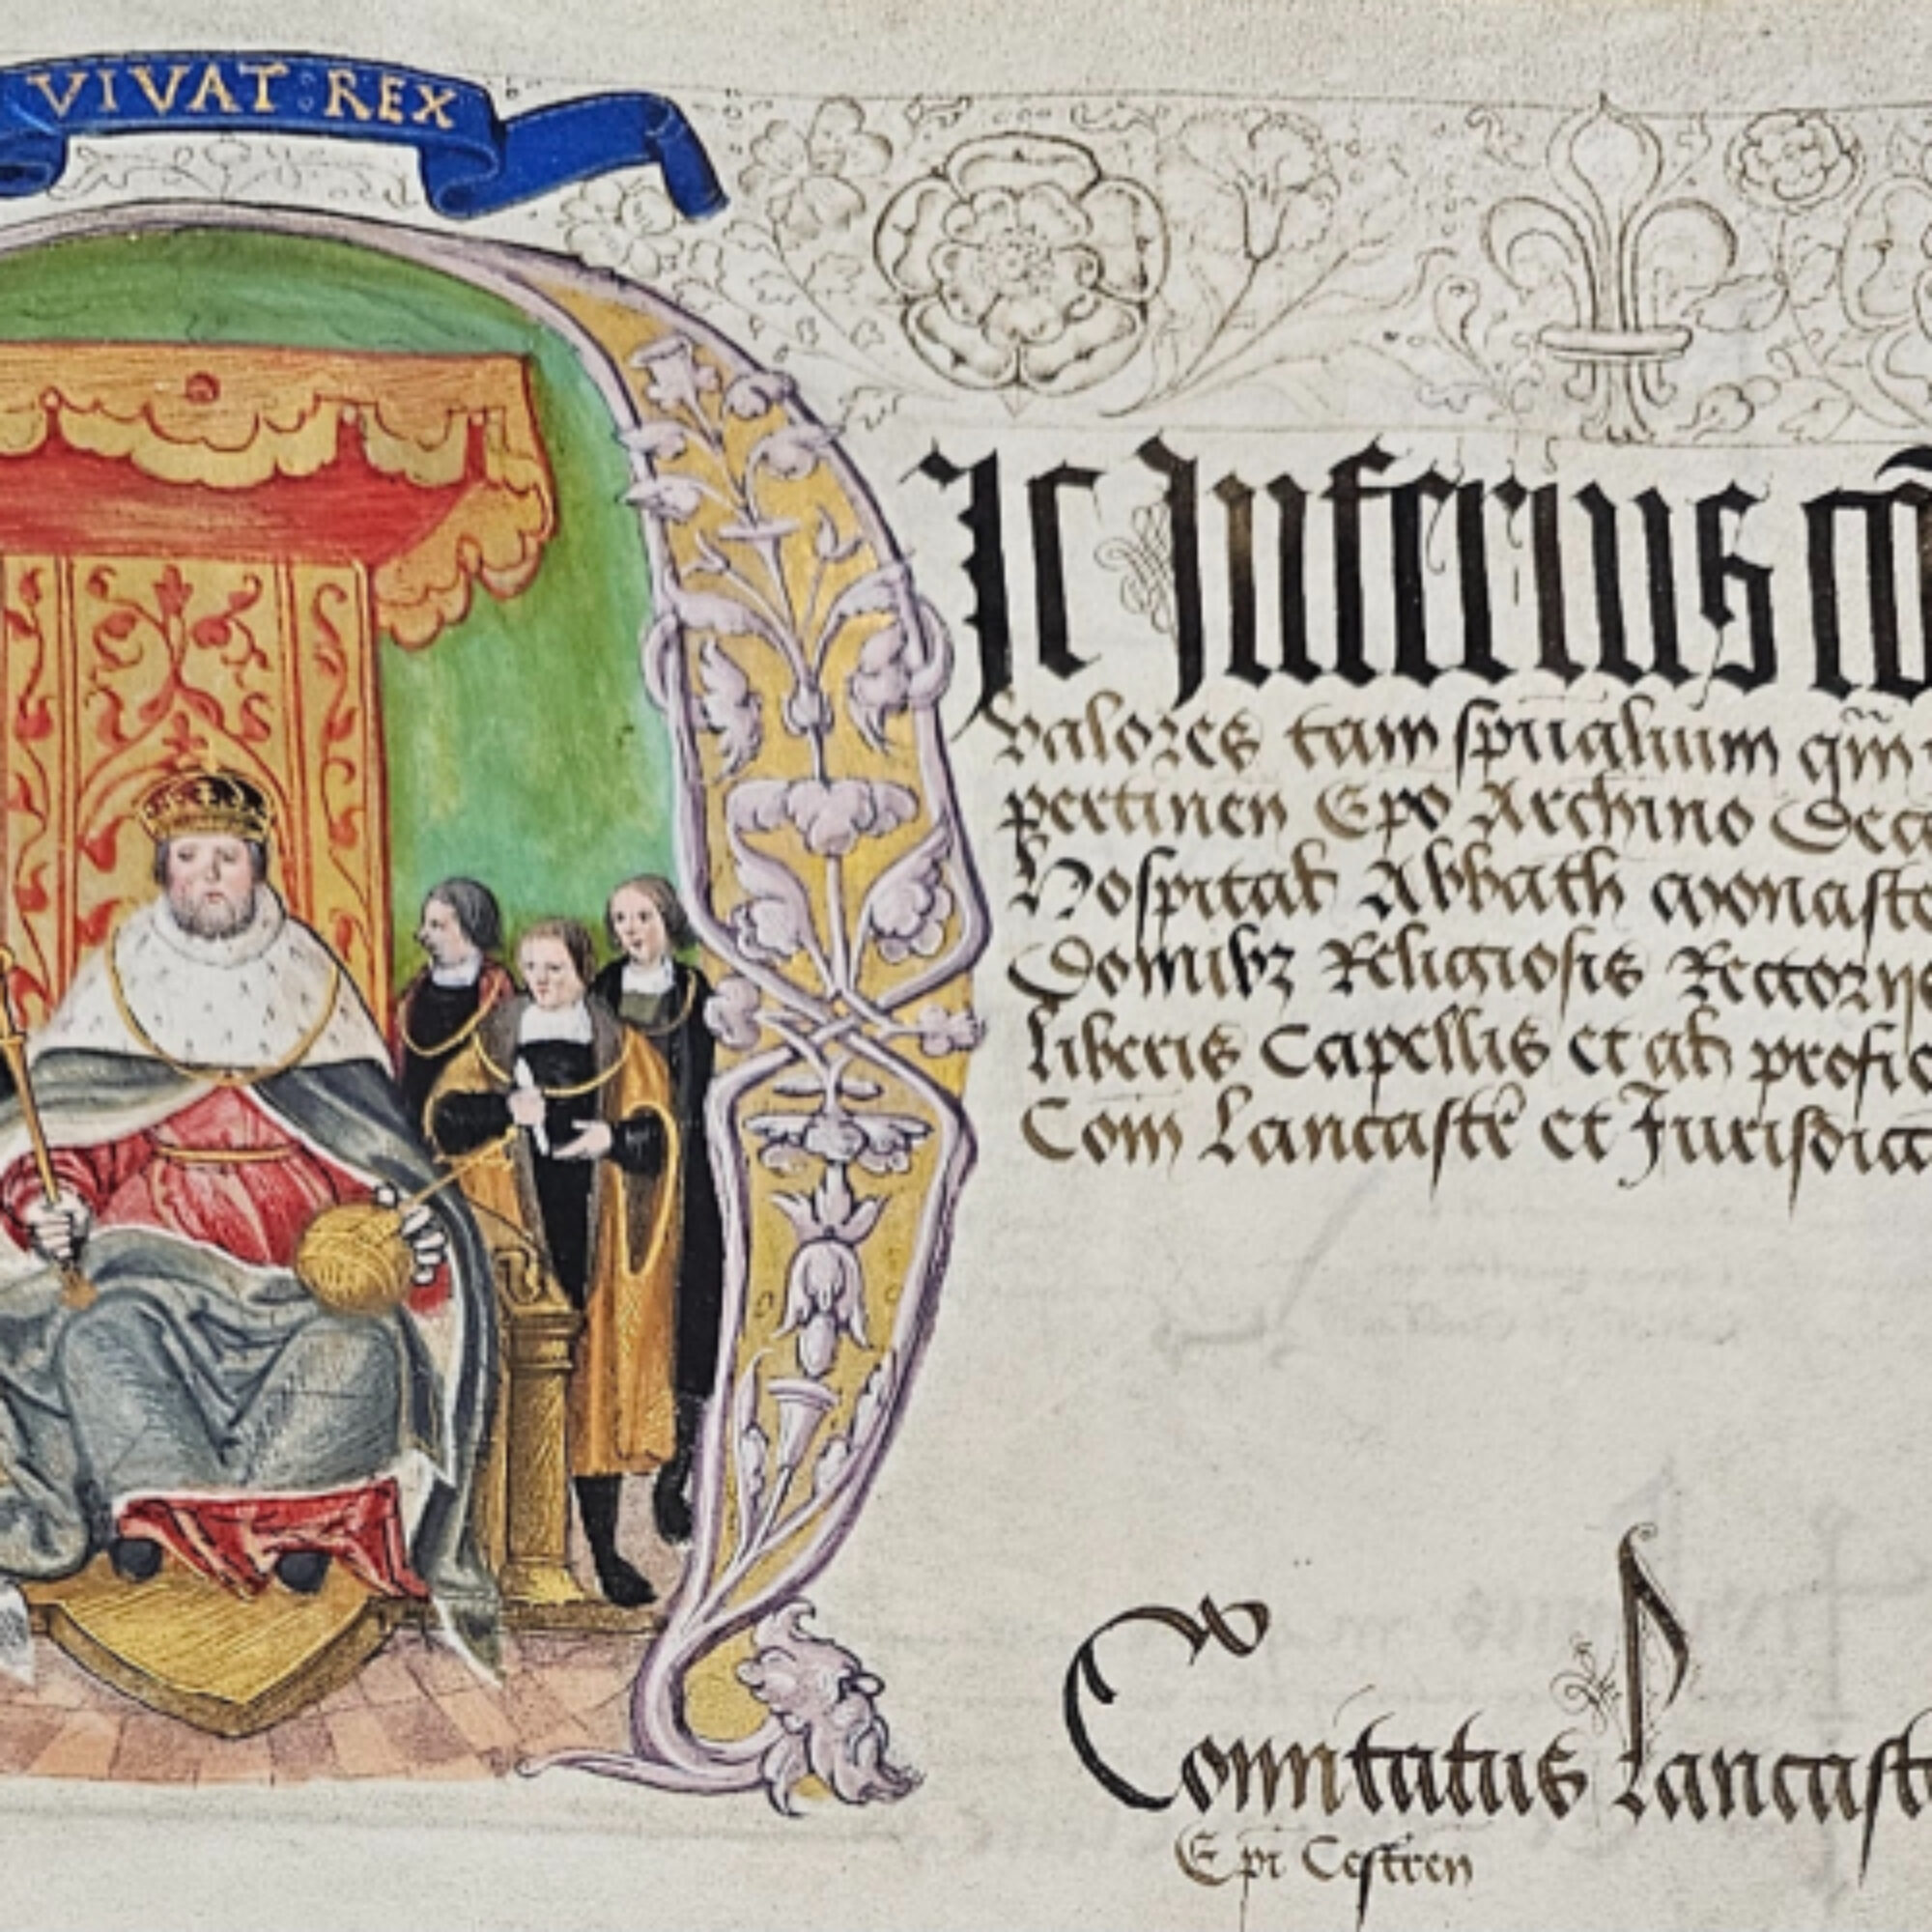 VIVAT : REX
Ic Inferius
Valores tam sp̄ualium qm̄
pertinen Ep̄o Archin̄o
Hospital Abbath monast
Domibȝ Religiosis Rector
liberis Capellis et al profic
Com̄ Lancastr̄ et Jurisdicc
Comitatus Lancast
Ep̄i Cestren